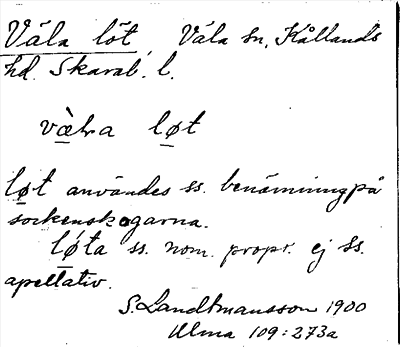 Väla löt, Väla sn, Kållands
hd. Skarab. l.
væ̀ɫa løt
løt användes ss. benämning på
sockenskogarna.
løta ss. nom. propr. ej ss.
apellativ.
S. Landtmansson 1900
Ulma 109:273a